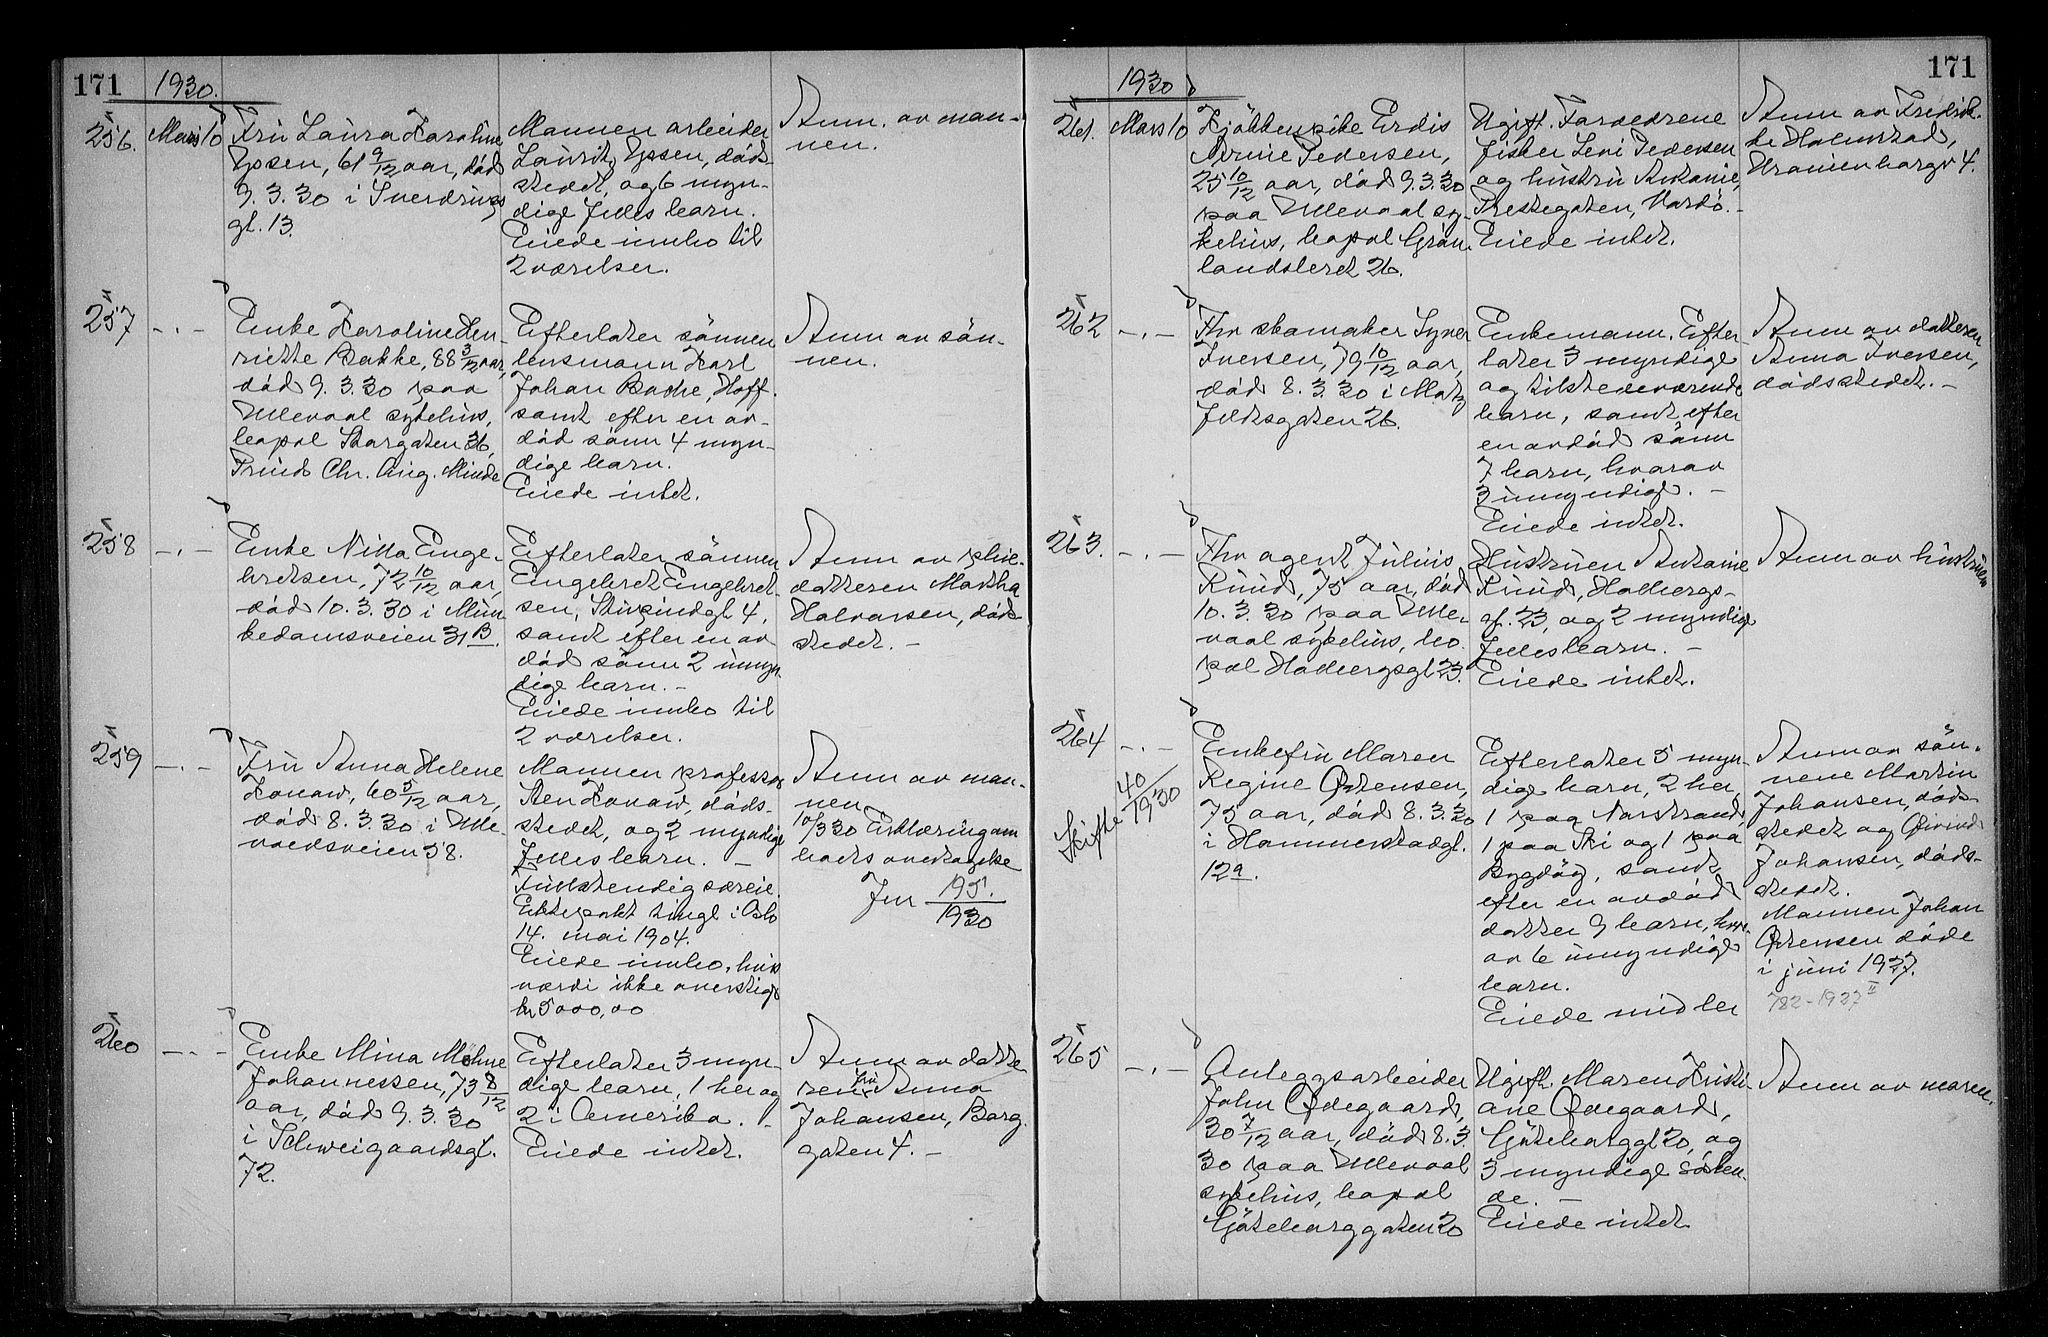 171
1930.
256.
Mars 10
Fru Laura Karoline
Ypsen, 61 9/12 aar, död
9. 3. 30 i Sverdrups
gt. 13.
Mannen arbeider
Laurits Ypsen, döds-
stedet, og 6 myn-
dige fælles barn.
Eiede innbo til
2 værelser.
Anm. av man-
nen.
257
-"-
Enke Karoline Hen-
riette Bakke, 88 3/12 aar,
död 9. 3. 30 paa
Ullevaal sykehus,
bopæl Storgaten 36,
Prinds Chr. Aug. Minde
Efterlater sönnen
lensmann Karl
Johan Bache, Hoff.
samt efter en av-
död sönn 4 myn-
dige barn.
Eiede intet.
Anm av sön-
nen.
258
-"-
Enke Nilla Enge-
bretsen, 72 10/12 aar,
död 10. 3. 30 i Mun
kedamsveien 31 B.
Efterlater sönnen
Engebret Engebret-
sen, 4,
samt efter en av
död sönn 2 umyn-
dige barn. -
Eiede innbo til
2 værelser.
Anm av pleie-
datteren Martha
Halvorsen, död-
stedet. -
259
-"-
Fru Anna Helene
Konow, 60 5/12 aar,
död 8. 3. 30 i Ulle-
voldsveien 58.
Mannen professor
Sten Konow, döds-
stedet, og 2 myndige
fælles barn. -
Fullstendig særeie.
Ektepakt tingl i Oslo
14. mai 1904.
Eiede innbo, hvis
værdi ikke overstige
kr 5000,00
Anm av man-
nen
10/3 30 Erklæring om
boets overtagelse
Jnr 195./1930
260
-"-
Enke Mina Möhne
Johannessen, 73 8/12
aar, död 9. 3. 30
i Schweigaardsgt.
72.
Efterlater 3 myn-
dige barn, 1 her og
2 i Amerika. -
Eiede intet.
Anm av datte
ren fru Anna
Johansen, Borg
gaten 4. -
171
1930
261.
Mars 10
Kjökkenpike Erdis
Pedersen,
25 10/12 aar, död 9. 3. 30
paa Ullevaal sy-
kehus, bopæl Grön-
landsleret 26.
Ugift. Forældrene
fisker Levi Pedersen
og hustru Antonie,
Prestegaten, Vardö. -
Eiede intet.
Anm av Fredrik-
ke Holmstad,
Uranienborgv 4.
262
-"-
Fhv skomaker Syver
Iversen, 79 10/12 aar,
död 8. 3. 30 i
26.
Enkemann. Efter-
later 3 myndige
og tilstedeværende
barn, samt efter
en avdöd sönn
7 barn, hvorav
3 umyndige. -
Eiede intet.
Anm av datteren
Anna Iversen,
dödsstedet. -
263.
-"-
Fhv agent Julius
Ruud, 75 aar, död
10. 3. 30 paa Ulle-
vaal sykehus, bo-
pæl Holbergsgt 23.
Hustruen Antonie
Ruud, Holbergs-
gt. 23, og 2 myndige
fælles barn. -
Eiede intet.
Anm av hustruen
264
-"-
Skifte 40/1930
Enkefru Maren
Regine Östensen,
75 aar, död 8. 3. 30
i Hammerstadgt.
12 a.
Efterlater 5 myn-
dige barn, 2 her,
1 paa Nordstrand,
1 paa Ski og 1 paa
Bygdöy, samt
efter en avdöd
datter 9 barn, hvor-
av 6 umyndige
barn.
Eiede midler
Anm av sön-
nene Martin
Johansen, döds
stedet og Öivind
Johansen, döds-
stedet.
Mannen Johan
Östensen döde
i juni 1927.
782-1927 II
265
-"-
Anleggsarbeider
John Ödegaard,
30 7/12 aar, död 8. 3.
30 paa Ullevaal
sykehus, bopæl
Göteborggaten 20
Ugift. Moren Kristi
ane Ödegaard,
Göteborggt 20, og
3 myndige sösken-
de. -
Eiede intet
Anm av moren.